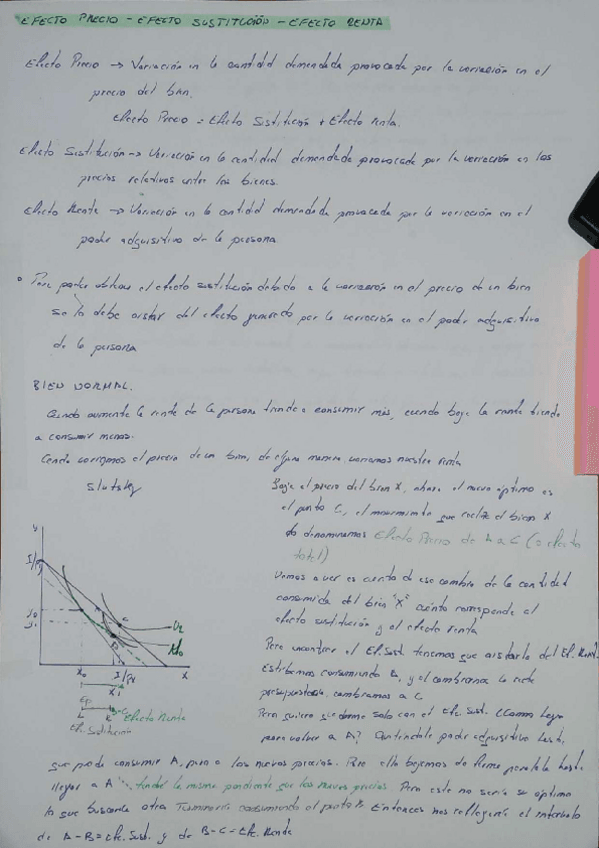 EFECTO PRECIO - EFECTO SUSTITUCIÓN - EFECTO RENTA
Efecto Precio → Variación en la cantidad demandada provocada por la variación en el
precio del bien.
Efecto Precio = Efecto Sustitución + Efecto renta.
Efecto Sustitución → Variación en la cantidad demandada provocada por la variación en los
precios relativos entre los bienes.
Efecto Renta → Variación en la cantidad demandada provocada por la variación en el
poder adquisitivo de la persona
Para poder obtener el efecto sustitución debido a la variación en el precio de un bien
se lo debe aislar del efecto generado por la variación en el poder adquisitivo
de la persona
BIEN NORMAL.
Cuando aumenta la renta de la persona tiende a consumir más, cuando baja la renta tiende
a consumir menos.
Cuando variamos el precio de un bien, de alguna manera variamos nuestra renta
Slutsky
Baja el precio del bien X, ahora el nuevo óptimo es
el punto C, el movimiento que realiza el bien X
lo denominamos Efecto Precio de A a C (= efecto
total)
Vamos a ver es cuanto de ese cambio de la cantidad
consumida del bien "X" cuánto corresponde al
efecto sustitución y al efecto renta
Para encontrar el Ef. Sust. tenemos que aislarlo del Ef. Renta.
Estábamos consumiendo A, y al cambiar la recta
presupuestaria, cambiamos a C
Pero quiero quedarme solo con el Efc. Sust. ¿Como hago
para volver a A? Quitándole poder adquisitivo hasta
que pueda consumir A, pero a los nuevos precios. Para ello bajamos de forma paralela hasta
llegar a A tendrá la misma pendiente por los nuevos precios Pero este no sería su óptimo
lo que buscaría otra Terminaría consumiendo el punto B Entonces nos reflejaría el intervalo
de A-B = Efc. Sust. y de B-C = Efc. Renta
y
I/Py
y0
y1
A
C
B
U2
X0
X1
I/Px
X
Ep
B-C Efecto Renta
Ef. Sustitución